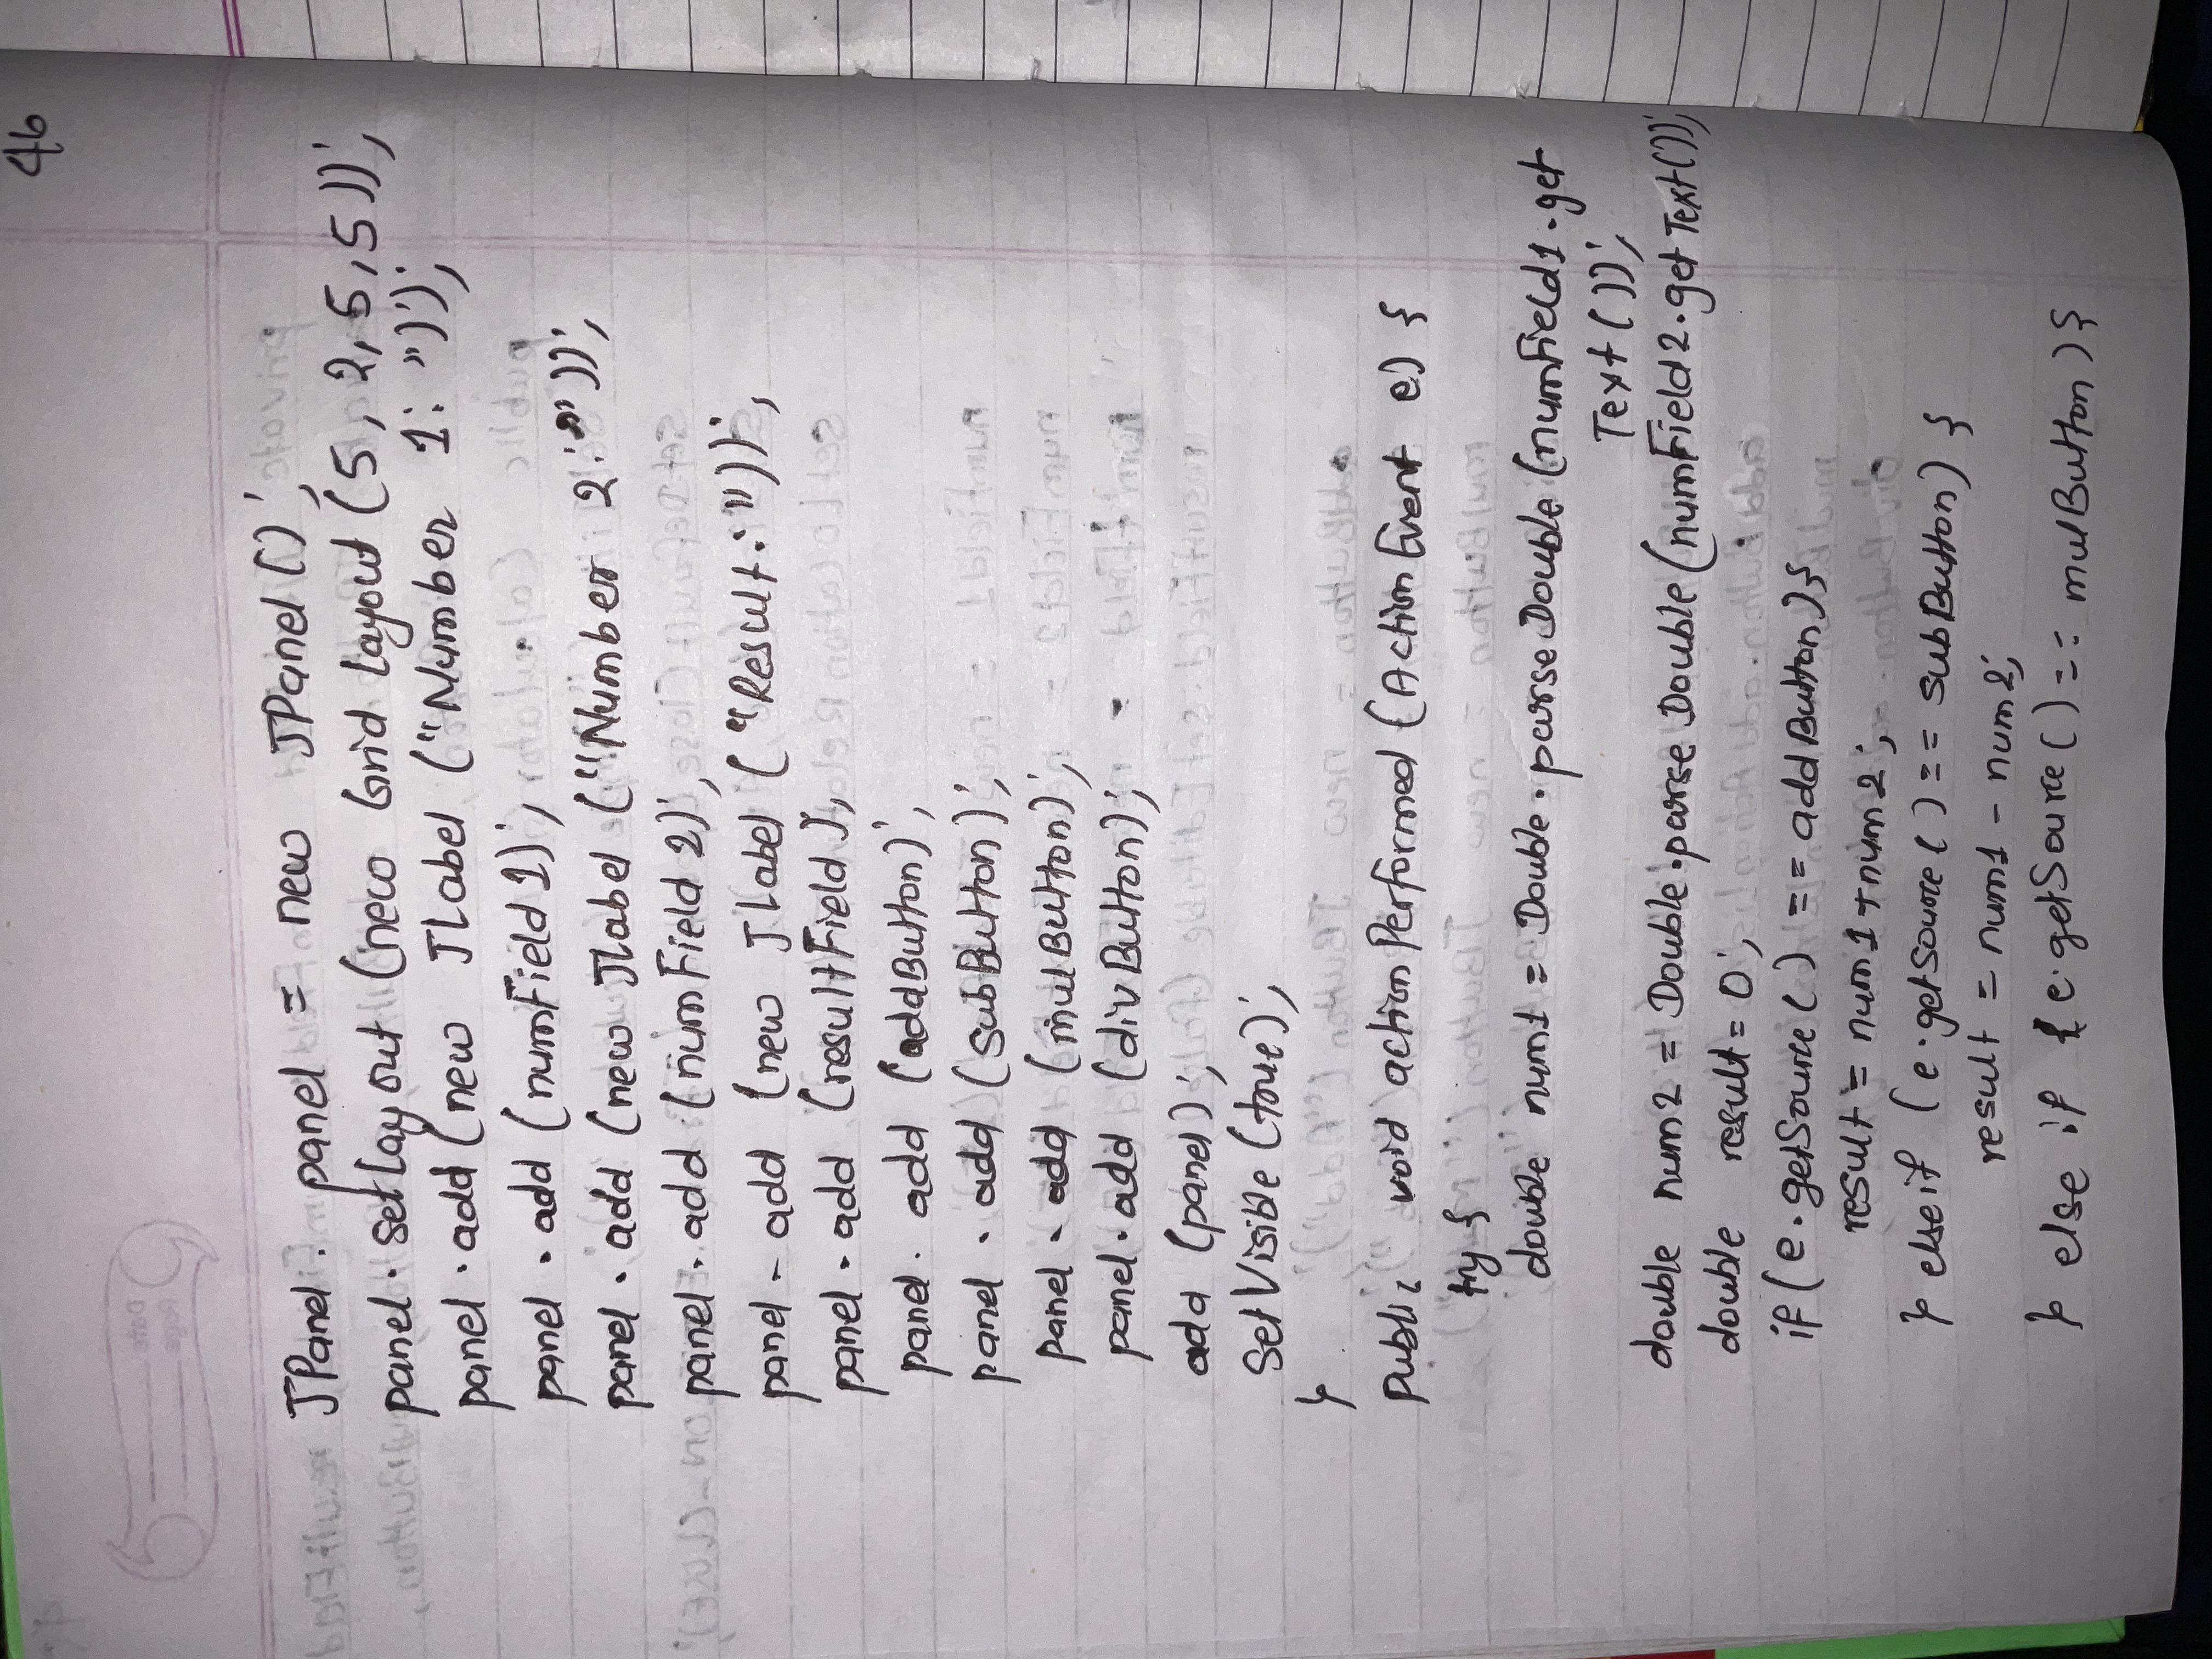 46
Date
Page
JPanel. panel = new JPanel();
panel.setLayout (new Grid layout (5, 2, 5, 5));
panel.add (new JLabel ("Number 1: "));
panel.add (numField1);
panel.add (new JLabel ("Number 2:"));
panel.add (numField2);
panel-add (new JLabel ("Result:"));
panel.add (resultField);
panel.add (addButton);
panel.add (subButton);
panel.add (mulButton);
panel.add (divButton);
add (panel);
SetVisible (true);
}
public void actionPerformed (ActionEvent e) {
try {
double num1 = Double.parseDouble (numField1.get
Text ());
double num2 = Double.parseDouble (numField2.getText());
double result = 0;
if (e.getSource() == addButton) {
result = num1 + num2;
} elseif (e.getSource() == subButton) {
result = num1 - num2;
} else if (e.getSource() == mulButton) {